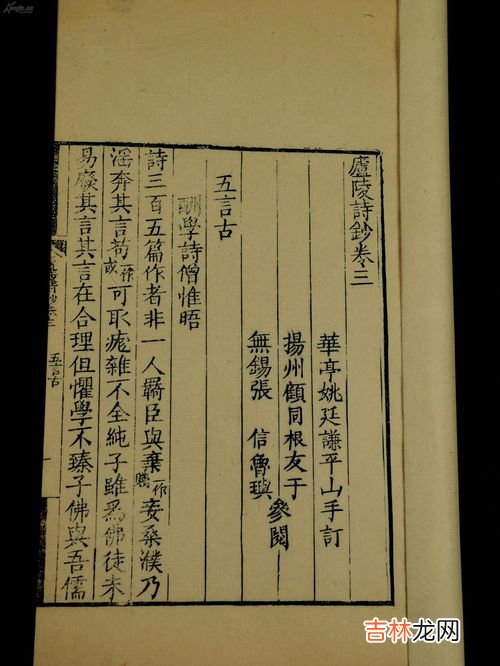 廬陵詩鈔卷三
華亭姚廷謙平山手訂
揚州顧同根友于
無錫張 信魯璵
參閱
五言古
酬學詩僧惟晤
詩三百五篇作者非一人羈臣與棄一作賤妾桑濮乃
淫奔其言苟一作或可取疵雜不全純子雖爲佛徒未
易廢其言其言在合理但懼學不臻子佛與吾儒
五言古
吉林龙网